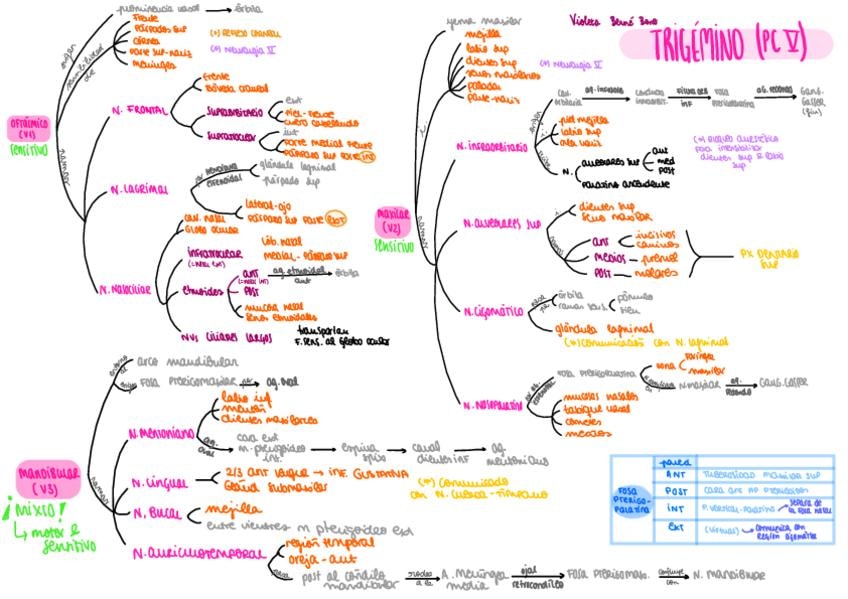 Violeta Berné Bara
TRIGÉMINO (PC V)
OFTÁLMICO
(V1)
SENSITIVO
origen
prominencia vasos
órbita
sensibilidad
de
frente
párpados sup
córnea
parte sup-nariz
meninges
(*) Reflejo corneal
(*) Neuralgia V
ramos
N. FRONTAL
frente
Bóveda craneal
Supraorbitario
ext
piel-frente
cuero cabelludo
Supratroclear
int
parte medial frente
párpado sup parte INT
N. LAGRIMAL
esfenoidal
glándula lagrimal
párpado sup
lateral-ojo
párpado sup parte EXT
N. NASOCILIAR
cav. nasal
Globo ocular
infratroclear
(=nasal ext)
lób. nasal
medial-párpado sup
etmoides
ant
(=nasal int)
ag. etmoidal
ant
órbita
post
mucosa nasal
senos etmoidales
NVS CILIARES LARGOS
transportan
F. sens. al globo ocular
MAXILAR
(V2)
SENSITIVO
yema maxilar
mejilla
labio sup
dientes sup
senos maxilares
paladar
parte-nariz
(*) Neuralgia V
ramos
N. INFRAORBITARIO
origen
cav.
orbitaria
conducto
infraorbit.
FISURA ORB
INF
Fosa
pterigopalatina
ag. redondo
Gang.
Gasser
(fin)
piel mejilla
labio sup
ala nariz
N.
alveolares sup
ant
med
post
palatino ascendente
(*) Bloqueo anestésico
para insensibilizar
dientes sup y labio
sup
N. ALVEOLARES SUP
dientes sup
seno maxilar
ramos
ANT
incisivos
caninos
MEDIOS
premol
POST
molares
PX DENTARIO
SUP
N. CIGOMÁTICO
órbita
ramas sens.
pómulo
sien
glándula lagrimal
(*) comunicación con N. lagrimal
N. NASOPALATINO
Fosa pterigopalatina
zona
faringe
maxilar
N. maxilar
ag.
redondo
Gang. Gasser
mucosas nasales
tabique nasal
cornetes
meatos
MANDIBULAR
(V3)
¡MIXTO!
motor &
sensitivo
arco mandibular
origen
Fosa pterigomaxilar
ag. oval
ramos
N. MENTONIANO
labio inf
mentón
dientes maxilares
ag.
oval
cara ext
m. pterigoideo
int.
espina
spix
canal
dientes inf
ag.
mentoniano
N. LINGUAL
2/3 ant lengua → inf. GUSTATIVA
Gland submaxilar
(*) Comunicado
con N. cuerda-tímpano
N. BUCAL
mejilla
entre vientres m pterigoideo ext
N. AURICULOTEMPORAL
región temporal
oreja-ant
post al cóndilo
mandibular
rodea
a la
A. meníngea
media
ojal
retrocondíleo
Fosa pterigomax.
confluye
con
N. mandibular
FOSA
PTERIGO-
PALATINA
pared
ANT
Tuberosidad maxilar sup
POST
cara ant ap. pterigoides
INT
P. vertical-palatino
separa de
la fosa nasal
EXT
(virtual)
comunica con
región cigomática